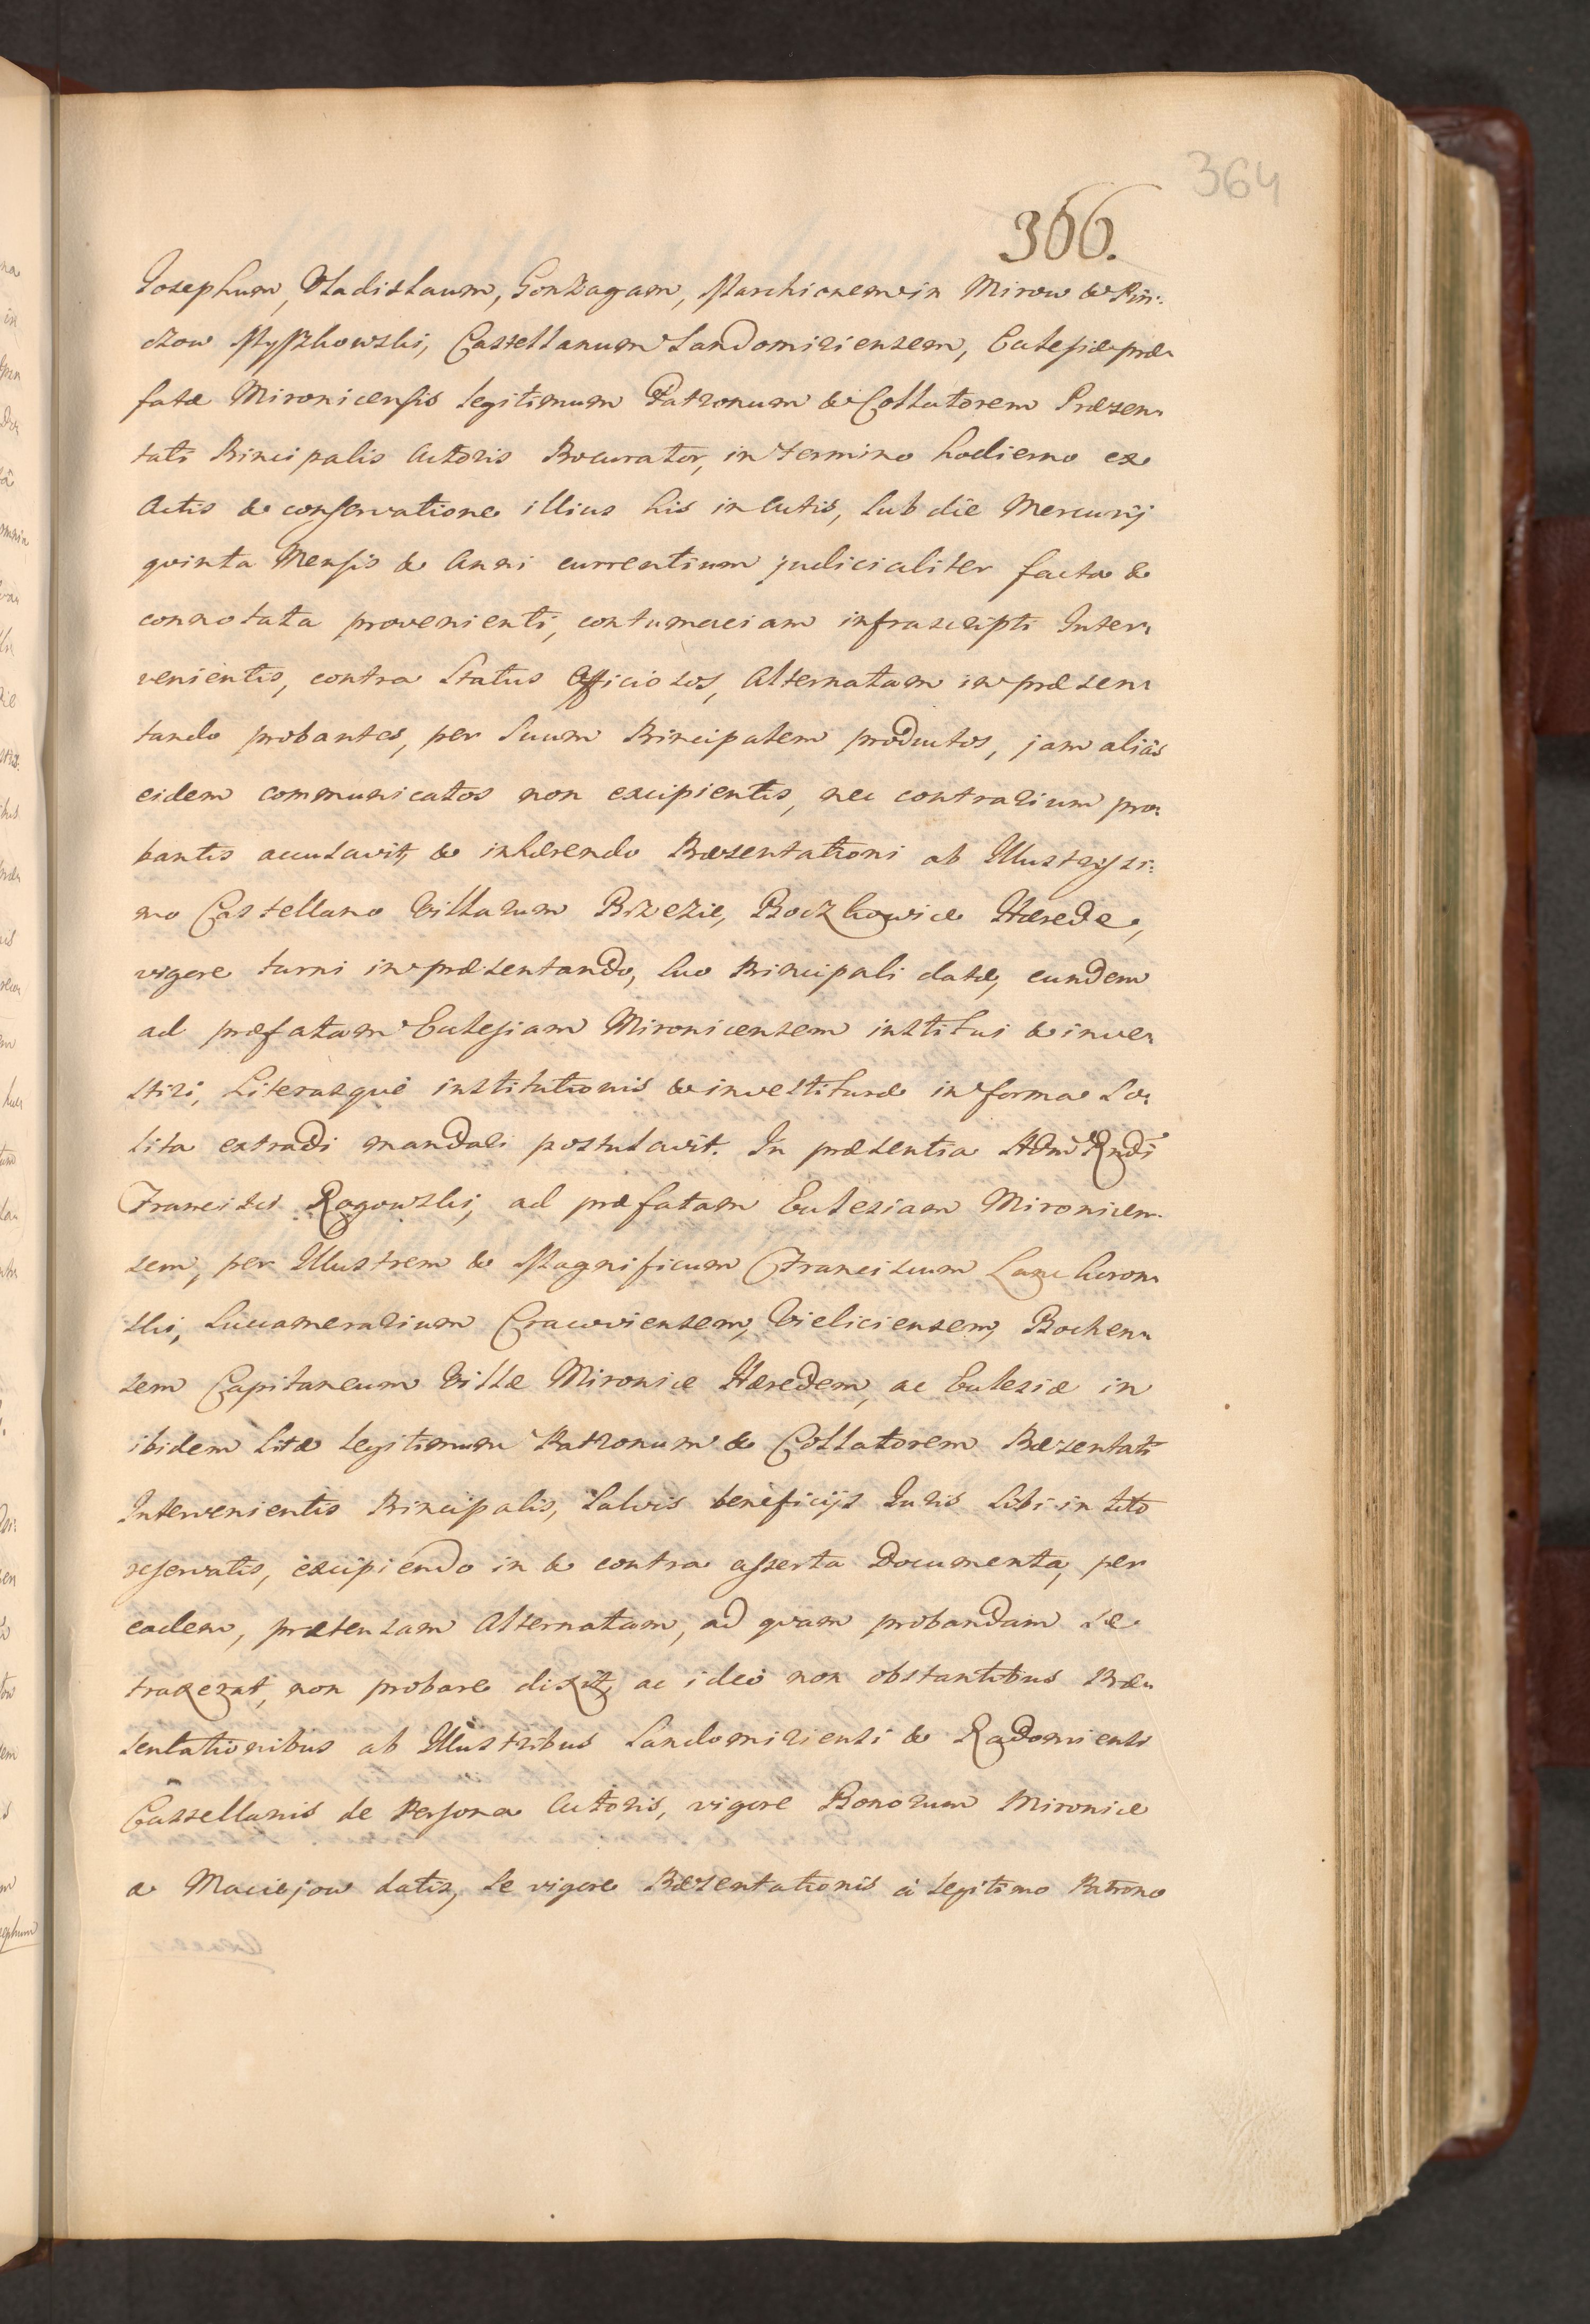 364
366.
Josephum, Vladislaum, Gonzagam, Marchionem in Mirow & Pin:
czow Myszkowski, Castellanum Sandomiriensem, Eclesiæ præ„
fatæ Mironicensis legitimum Patronum & Collatorem Præsen„
tati Principalis Actoris Procurator, in termino hodierno ex
Actis & conservatione illius his in Actis, sub die Mercurij
qvinta Mensis & Anni currentium judicialiter facta &
connotata provenienti, contumaciam infrascripti Inter„
venientis, contra Status Officiosos, Alternatam in præsen„
tando probantes, per suum Principalem productos, jam aliàs
eidem communicatos non excipientis, nec contrarium pro„
bantis accusavit, & inhærendo Præsentationi ab Illustrissi:
mo Castellano Villarum Brzezie, Boczkowice Hærede,
vigore turni in præsentando, suo Principali datæ, eundem
ad præfatam Eclesiam Mironicensem institui & inve„
stiri, Literasque institutionis & investituræ in forma so„
lita extradi mandari postulavit. In præsentia Adm Rndi
Francisci Rogowski, ad præfatam Eclesiam Mironicen„
sem, per Illustrem & Magnificum Franciscum Lanckoron„
ski, Succamerarium Cracoviensem, Vieliciensem, Bochen„
sem Capitaneum Villæ Mironice Hæredem, ac Eclesiæ in
ibidem sitæ legitimum Patronum & Collatorem Præsentati
Intervenientis Principalis, salvis beneficijs Juris sibi in toto
reservatis, excipiendo in & contra asserta Documenta, per
eadem, prætensam Alternatam, ad qvam probandam se
traxerat, non probare dixit, ac ideo non obstantibus Præ„
sentationibus ab Illustribus Sandomiriensi & Radomiensi
Castellanis de Persona Actoris, vigore Bonorum Mironice
a Maciejow datis, se vigore Præsentationis à legitimo Patrono